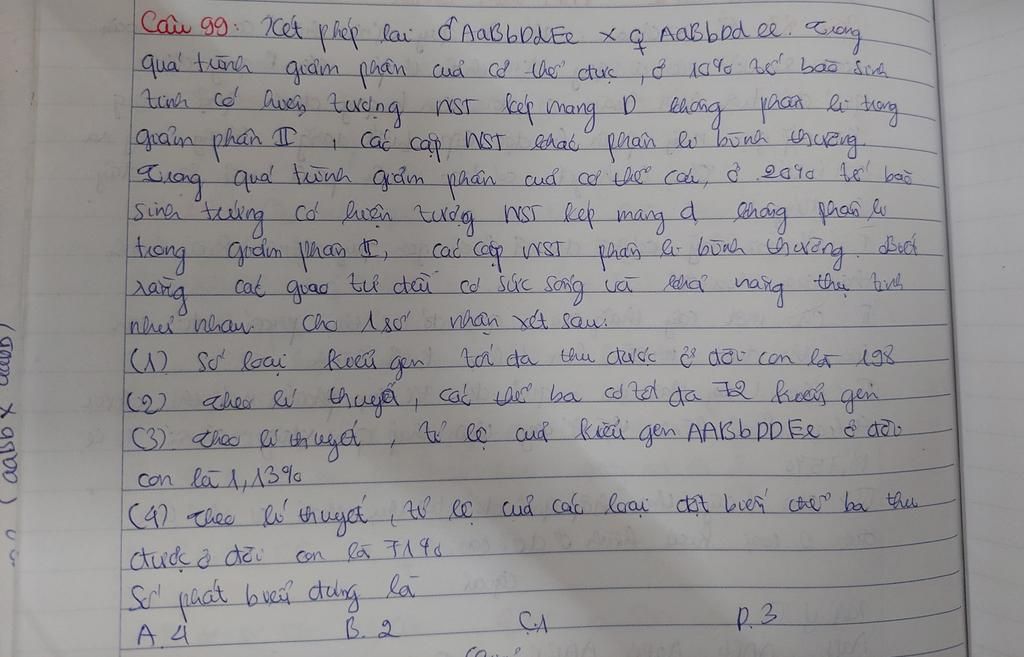 Câu 99: Xét phép lai ♂ AaBbDdEe x ♀ AaBbDdee. Trong
quá trình giảm phân của cơ thể đực, ở 10% tế bào sinh
tinh có hiện tượng NST kép mang D không phân li trong
giảm phân II, các cặp NST khác phân li bình thường.
Trong quá trình giảm phân của cơ thể cái, ở 20% tế bào
sinh trứng có hiện tượng NST kép mang d không phân li
trong giảm phân II, các cặp NST phân li bình thường. Biết
rằng các giao tử đều có sức sống và khả năng thụ tinh
như nhau. Cho 1 số nhận xét sau:
(1) Số loại kiểu gen tối đa thu được ở đời con là 198
(2) Theo lí thuyết, các thể ba có tối đa 72 kiểu gen
(3) Theo lí thuyết, tỉ lệ của kiểu gen AABbDDEe ở đời
con là 1,13%
(4) Theo lí thuyết, tỉ lệ của các loại đột biến thể ba thu
được ở đời con là 71%
Số phát biểu đúng là
A. 4 B. 2 C. 1 D. 3
(aaBb x aaBb)